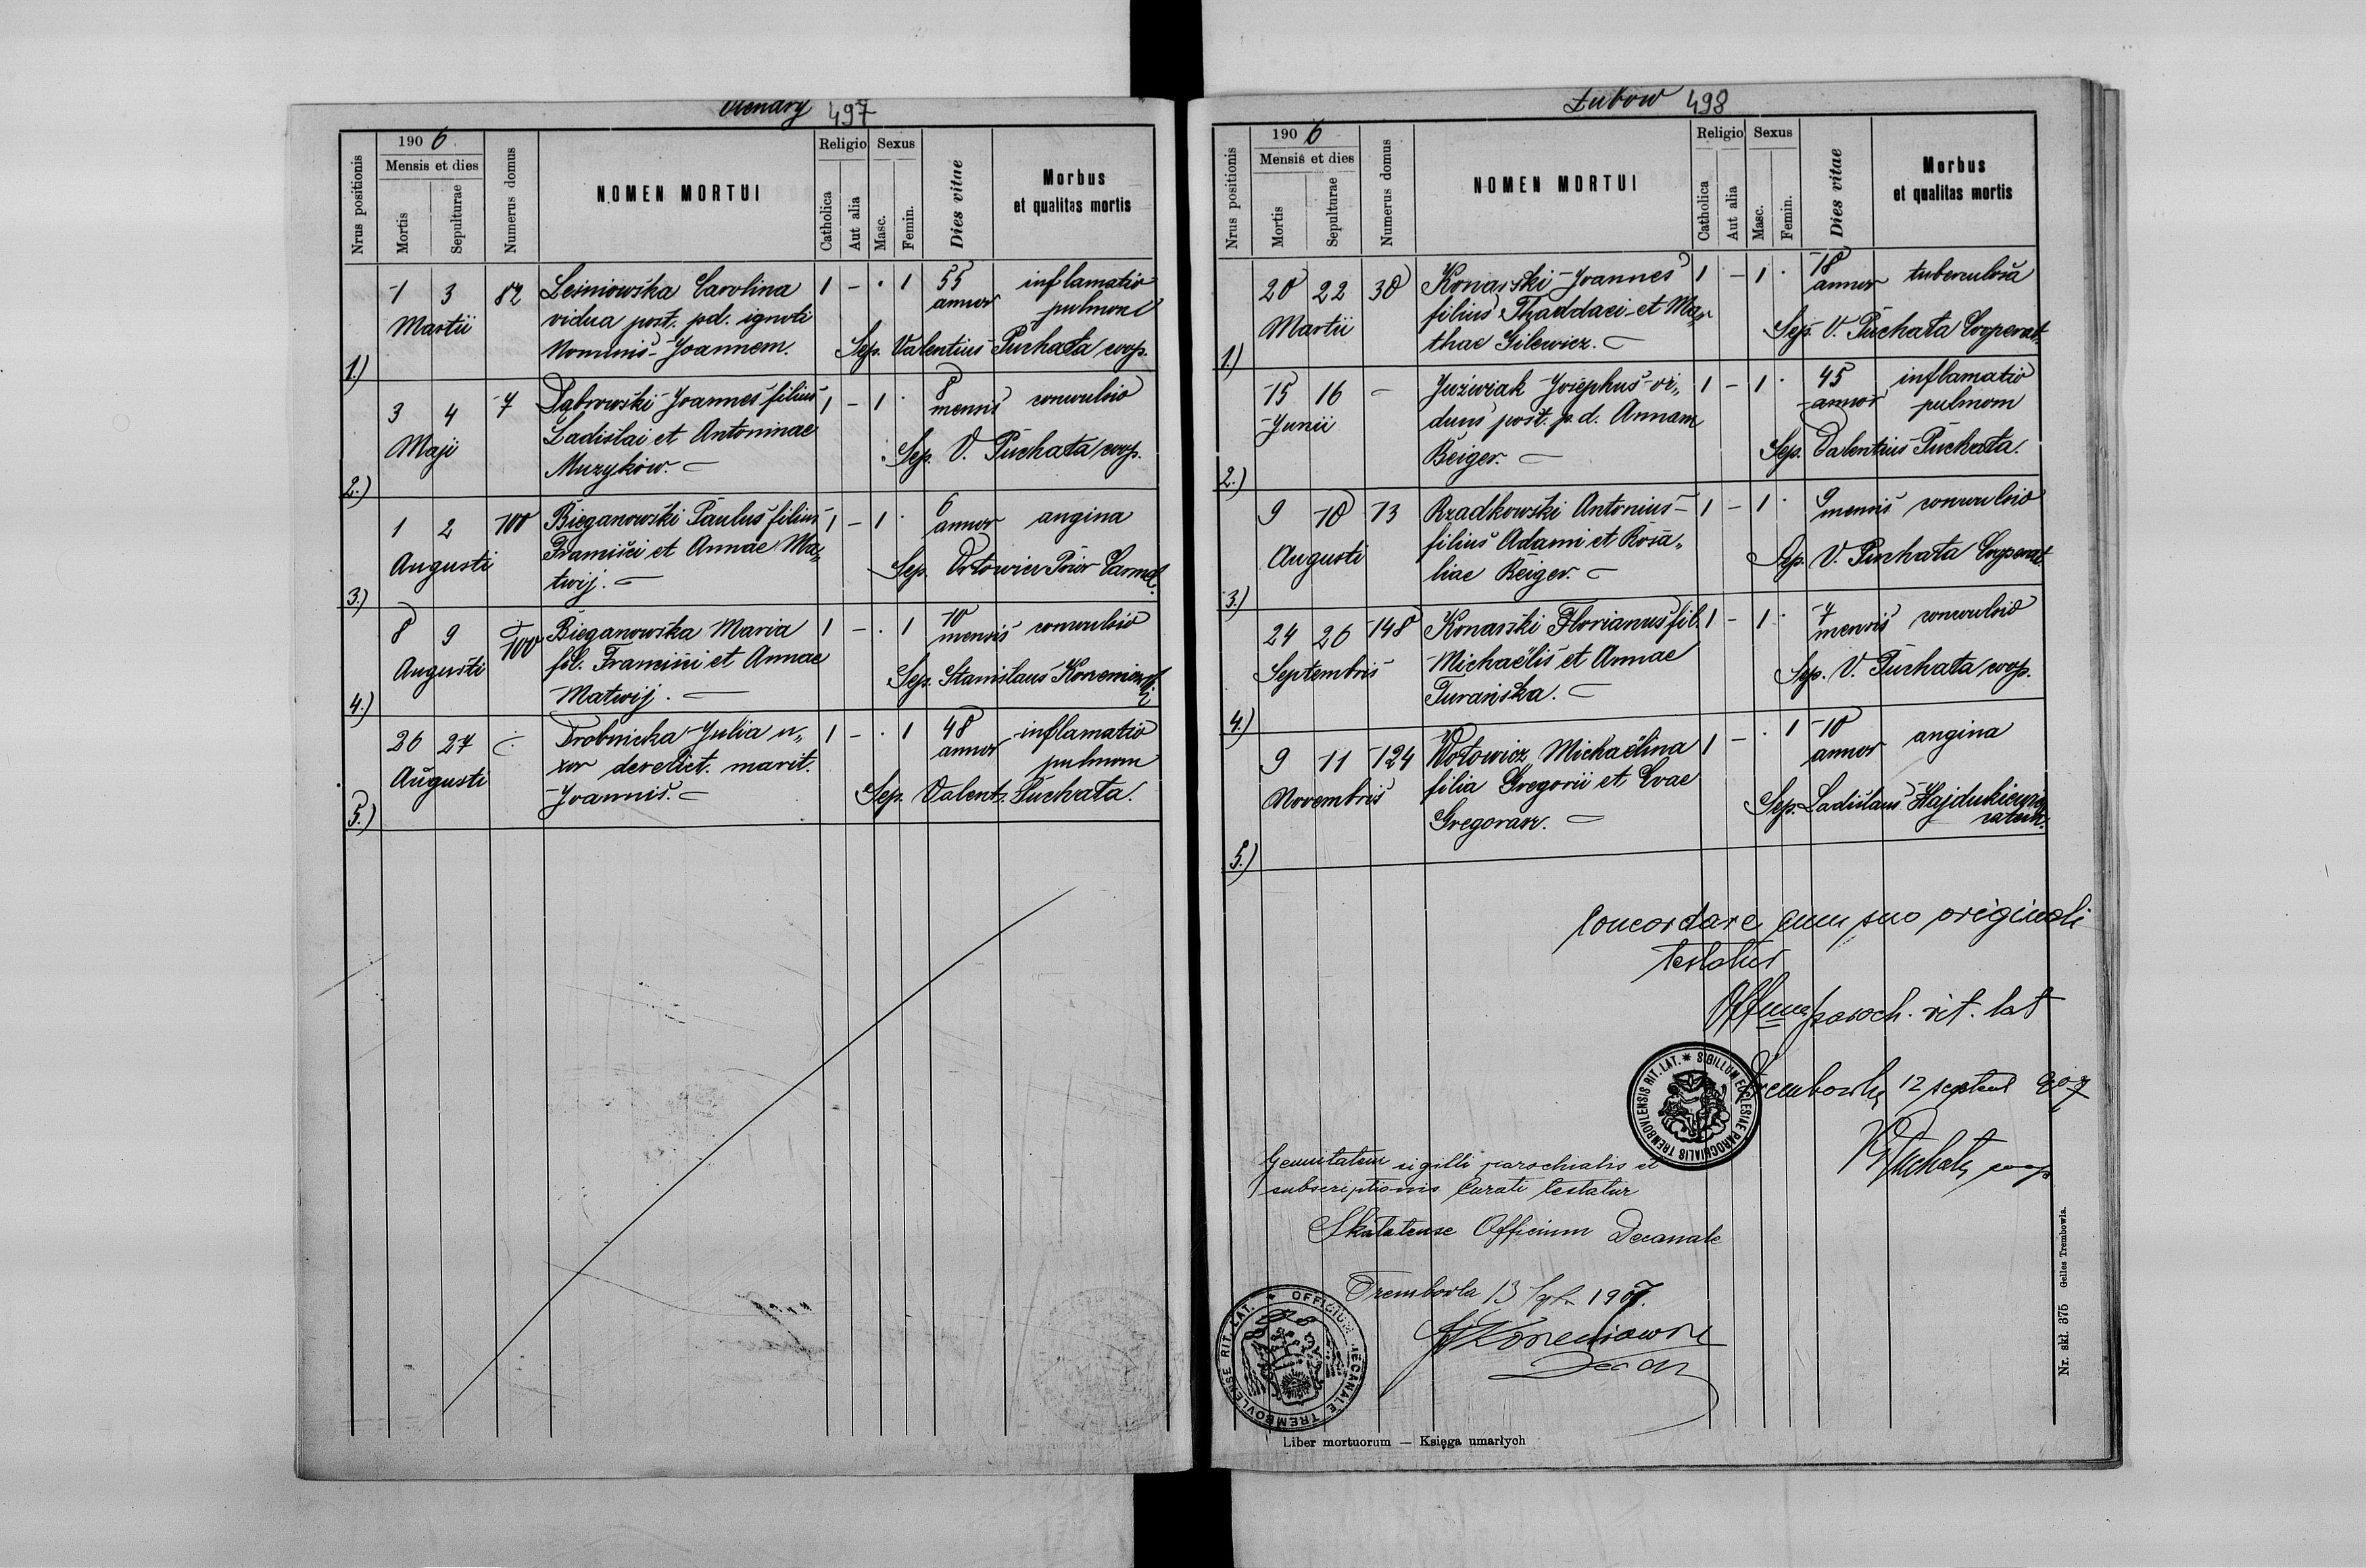 497
1906
Nrus positionis
Mensis et dies
Mortis
Sepulturae
Numerus domus
NOMEN MORTUI
Religio
Catholica
Aut alia
Sexus
Masc.
Femin.
Dies vitae
Morbus
et qualitas mortis
1 3 82 Leśniowska Carolina 1 – · 1 55 inflamatio
Martii vidua post. pd. ignoti annor pulmon
1.) Nominis Joannem. Sep. Valentius Puchała coop.
3 4 7 Dąbrowski Joannes filius 1 – 1 · 8 convulsio
Maji Ladislai et Antoninae mensis
2.) Muzyków. – Sep. V. Puchała coop.
1 2 100 Bieganowski Paulus filius 1 – 1 · 6 angina
Augusti Francisci et Annae Ma„ annor
3.) twij. – Sep. Prior Carmel.
8 9 100 Bieganowska Maria 1 – · 1 10 convulsio
Augusti fil. Francisci et Annae mensis
4.) Matwij. – Sep. Stanislaus
26 27 Drobnicka Julia u„ 1 – · 1 48 inflamatio
Augusti xor derelict. marit. annor pulmon
5.) Joannis. – Sep. Valent. Puchała.
Łubow 498
1906
Nrus positionis
Mensis et dies
Mortis
Sepulturae
Numerus domus
NOMEN MORTUI
Religio
Catholica
Aut alia
Sexus
Masc.
Femin.
Dies vitae
Morbus
et qualitas mortis
20 22 38 Konarski Joannes 1 – 1 · 18 tuberculosa
Martii filius Thaddaei et Mar annor
1.) thae Gilewicz. – Sep. V. Puchała Cooperat.
15 16 – Juzwiak Josephus vi„ 1 – 1 · 45 inflamatio
Junii duus post. p.d. Annam annor pulmom
2.) Beiger. – Sep. Valentius Puchała.
9 10 13 Rzadkowski Antonius 1 – 1 · 9 convulsio
Augusti filius Adami et Rosa„ mensis
3.) liae Beiger. – Sep. V. Puchała Cooperat.
24 26 148 Konarski Florianus fil. 1 – 1 · 7 convulsio
Septembris Michaëlis et Annae mensis
4.) Turańska. – Sep. V. Puchała coop.
9 11 124 Wołowicz Michaëlina 1 – · 1 10 angina
Novembris filia Gregorii et Evae annor
5.) Gregorasz. – Sep. Ladislaus Hajdukiewicz
Concordare cum suo originali
testatur
paroch. rit. lat
Trembowla 12 septemb 907
V Puchała coop
SIGILLUM ECCLESIAE PAROCHIALIS TREMBOVLENSIS RIT. LAT.
Genuitatem sigilli parochialis et
subscriptionis Curati testatur
Skałatense Officium Decanale
Trembowla 13 1907.
OFFICIUM DECANALE TREMBOVLENSE RIT. LAT.
Liber mortuorum — Księga umarłych
Nr. skł. 375 Gelles Trembowla.